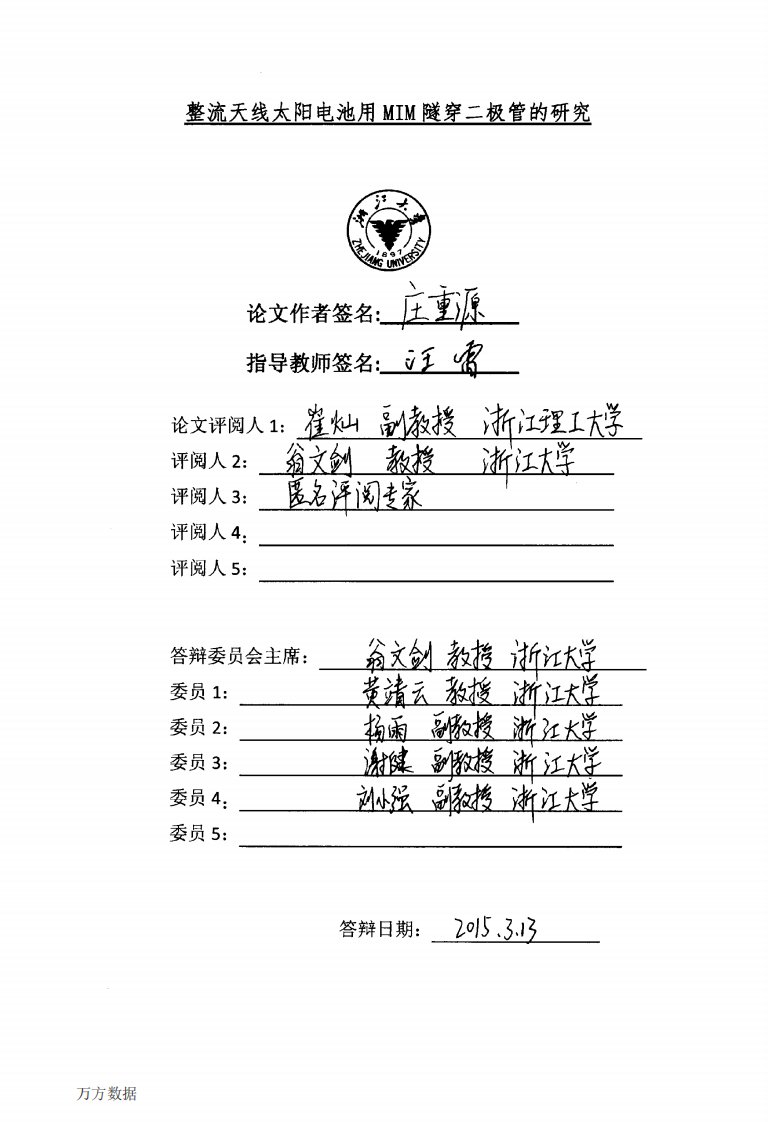 整流天线太阳电池用 MIM 隧穿二极管的研究
浙江大学
1897
ZHEJIANG UNIVERSITY
论文作者签名: 庄重源
指导教师签名: 汪雷
论文评阅人 1: 崔灿 副教授 浙江理工大学
评阅人 2: 翁文剑 教授 浙江大学
评阅人 3: 匿名评阅专家
评阅人 4:
评阅人 5:
答辩委员会主席: 翁文剑 教授 浙江大学
委员 1: 黄靖云 教授 浙江大学
委员 2: 杨雨 副教授 浙江大学
委员 3: 谢健 副教授 浙江大学
委员 4: 刘小强 副教授 浙江大学
委员 5:
答辩日期: 2015.3.13
万方数据